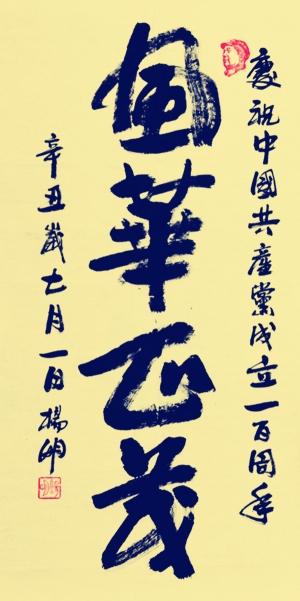 慶祝中國共產黨成立一百周年
風華正茂
辛丑歲七月一日楊帥